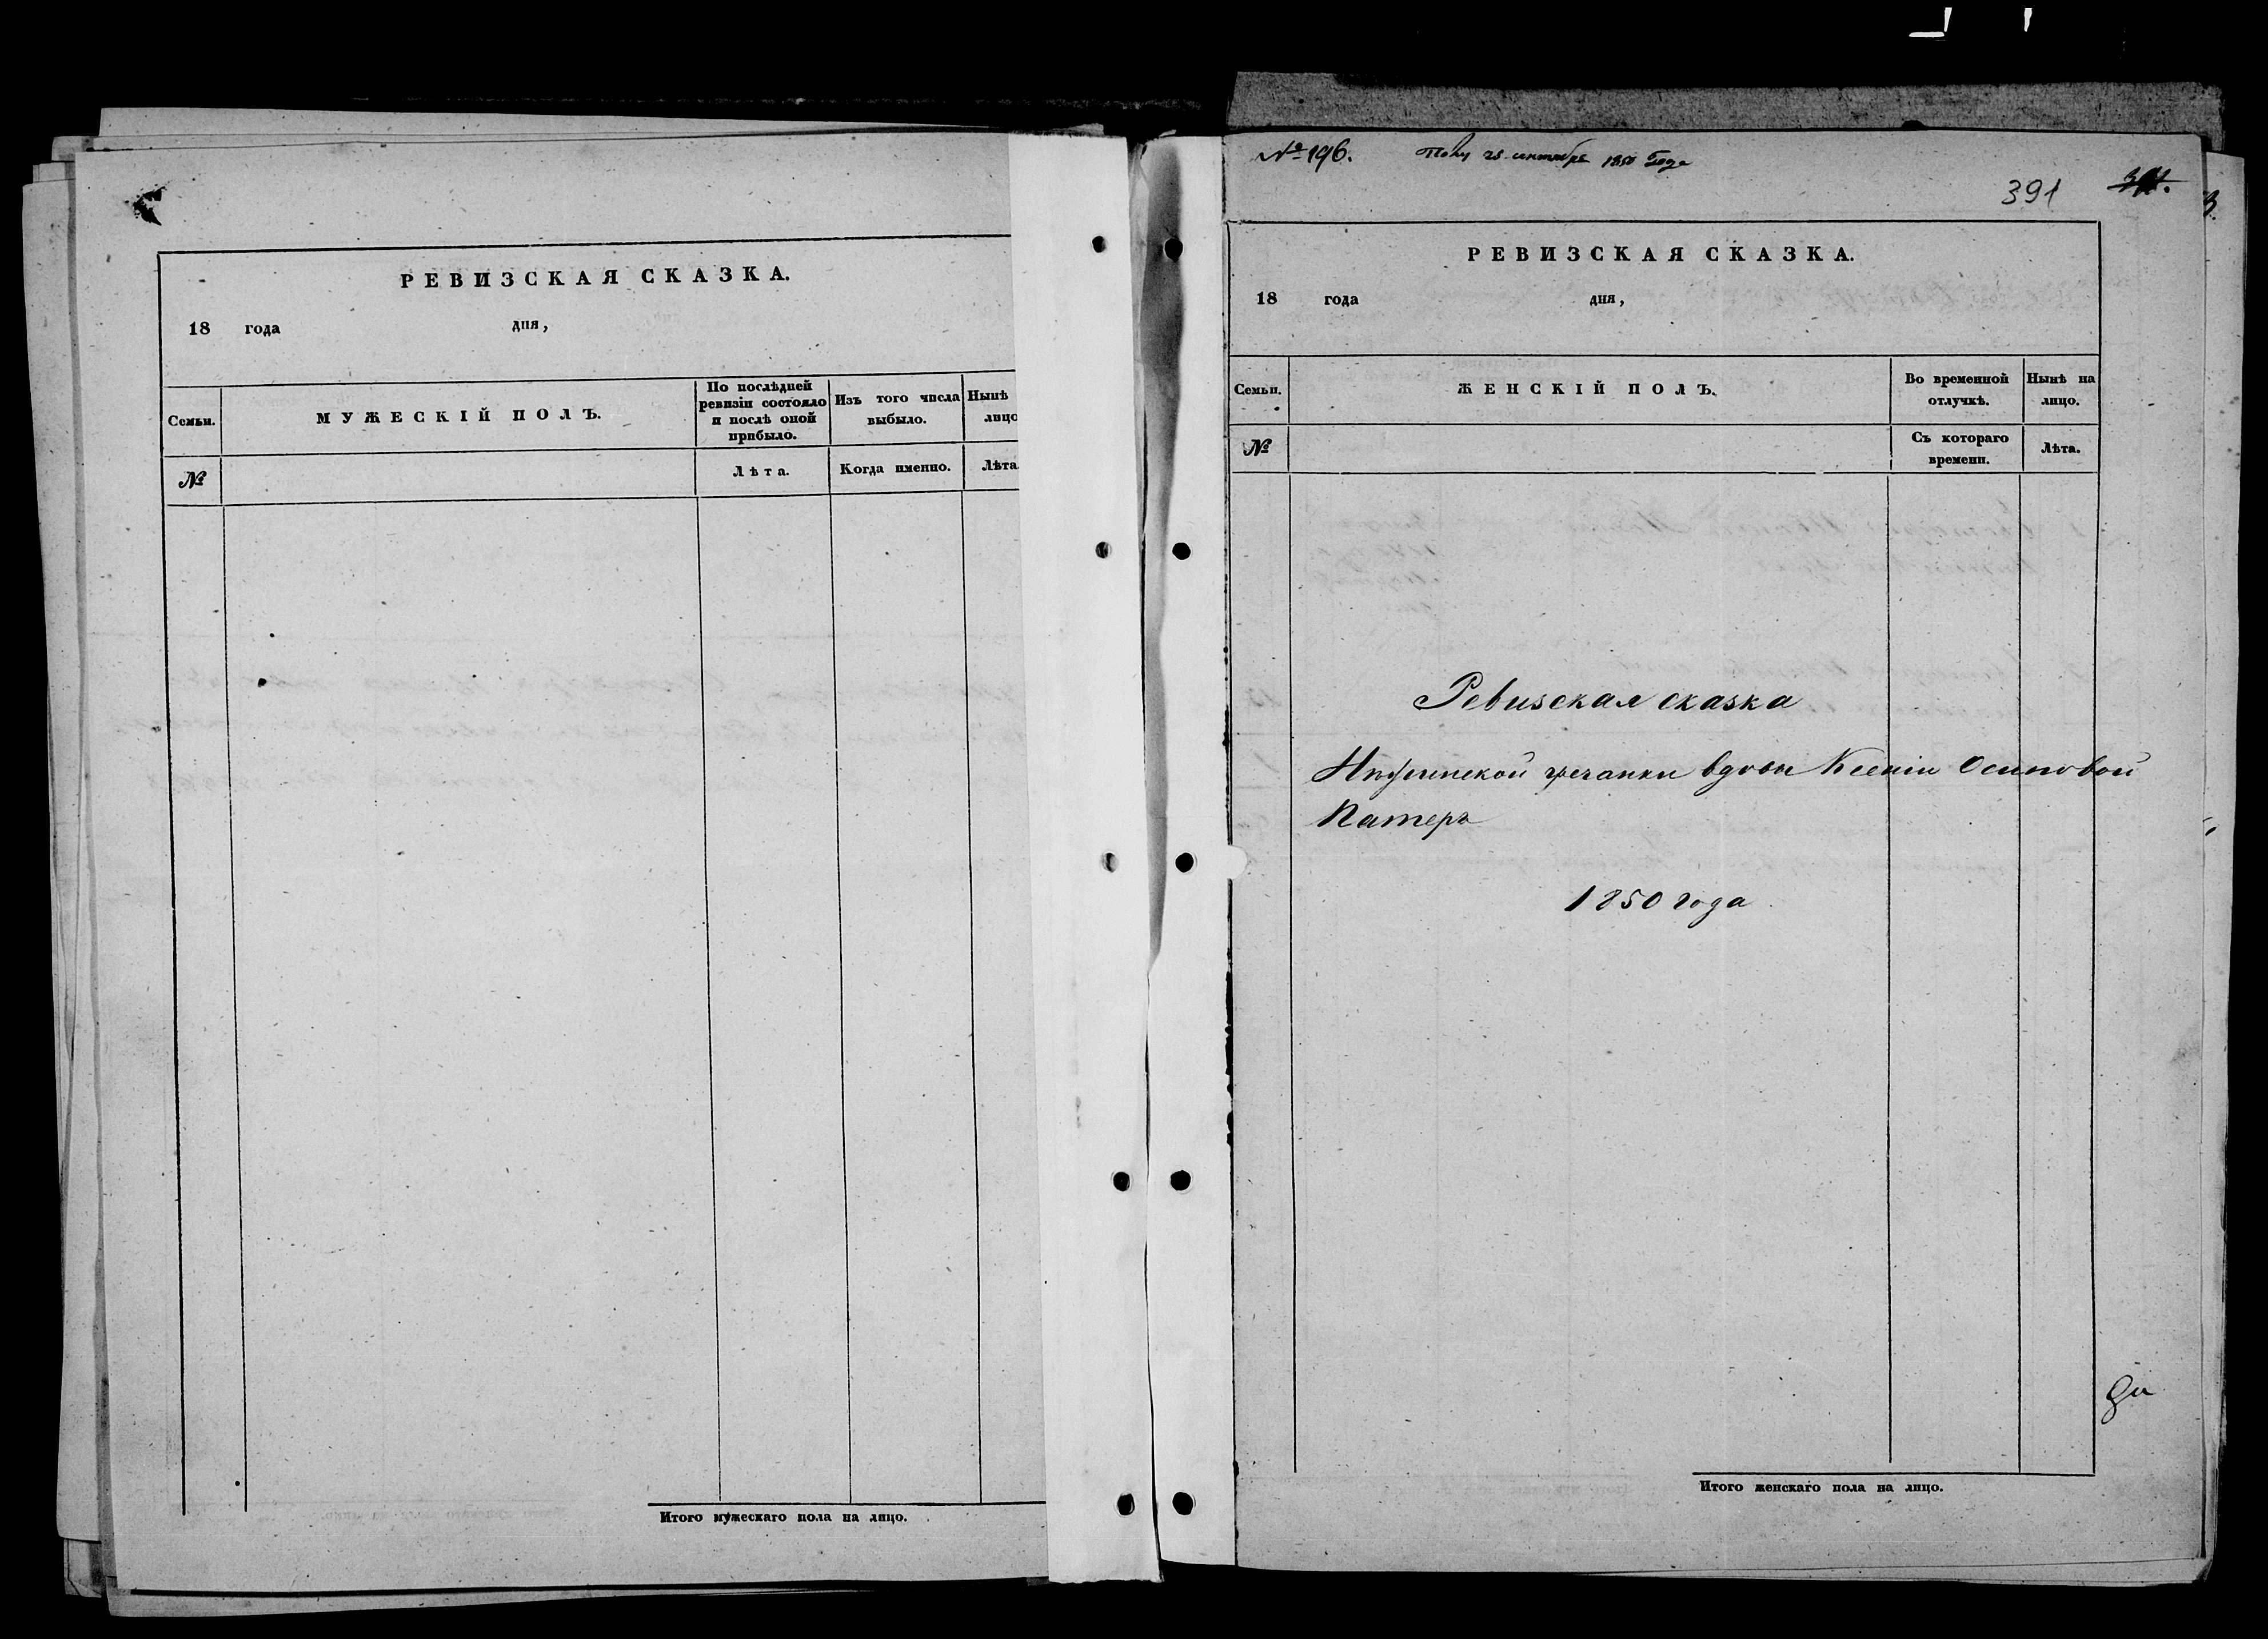 РЕВИЗСКАЯ СКАЗКА.
18 года дня,
Семьи.
МУЖЕСКІЙ ПОЛЪ.
По послѣдней ревизіи состояло и послѣ оной прибыло.
Изъ того числа выбыло.
Нынѣ лицо
№
Лѣта.
Когда именно.
Лѣта
Итого мужескаго пола на лицо.
№ 196.
25 сентября 1850 года
391
РЕВИЗСКАЯ СКАЗКА.
18 года дня,
Семьи.
ЖЕНСКІЙ ПОЛЪ.
Во временной отлучкѣ.
Нынѣ на лицо.
№
Съ котораго времени.
Лѣта.
Ревизская сказка
Нѣжинской гречанки вдовы Ксеніи Осиповой
Патеръ
1850 года
Итого женскаго пола на лицо.